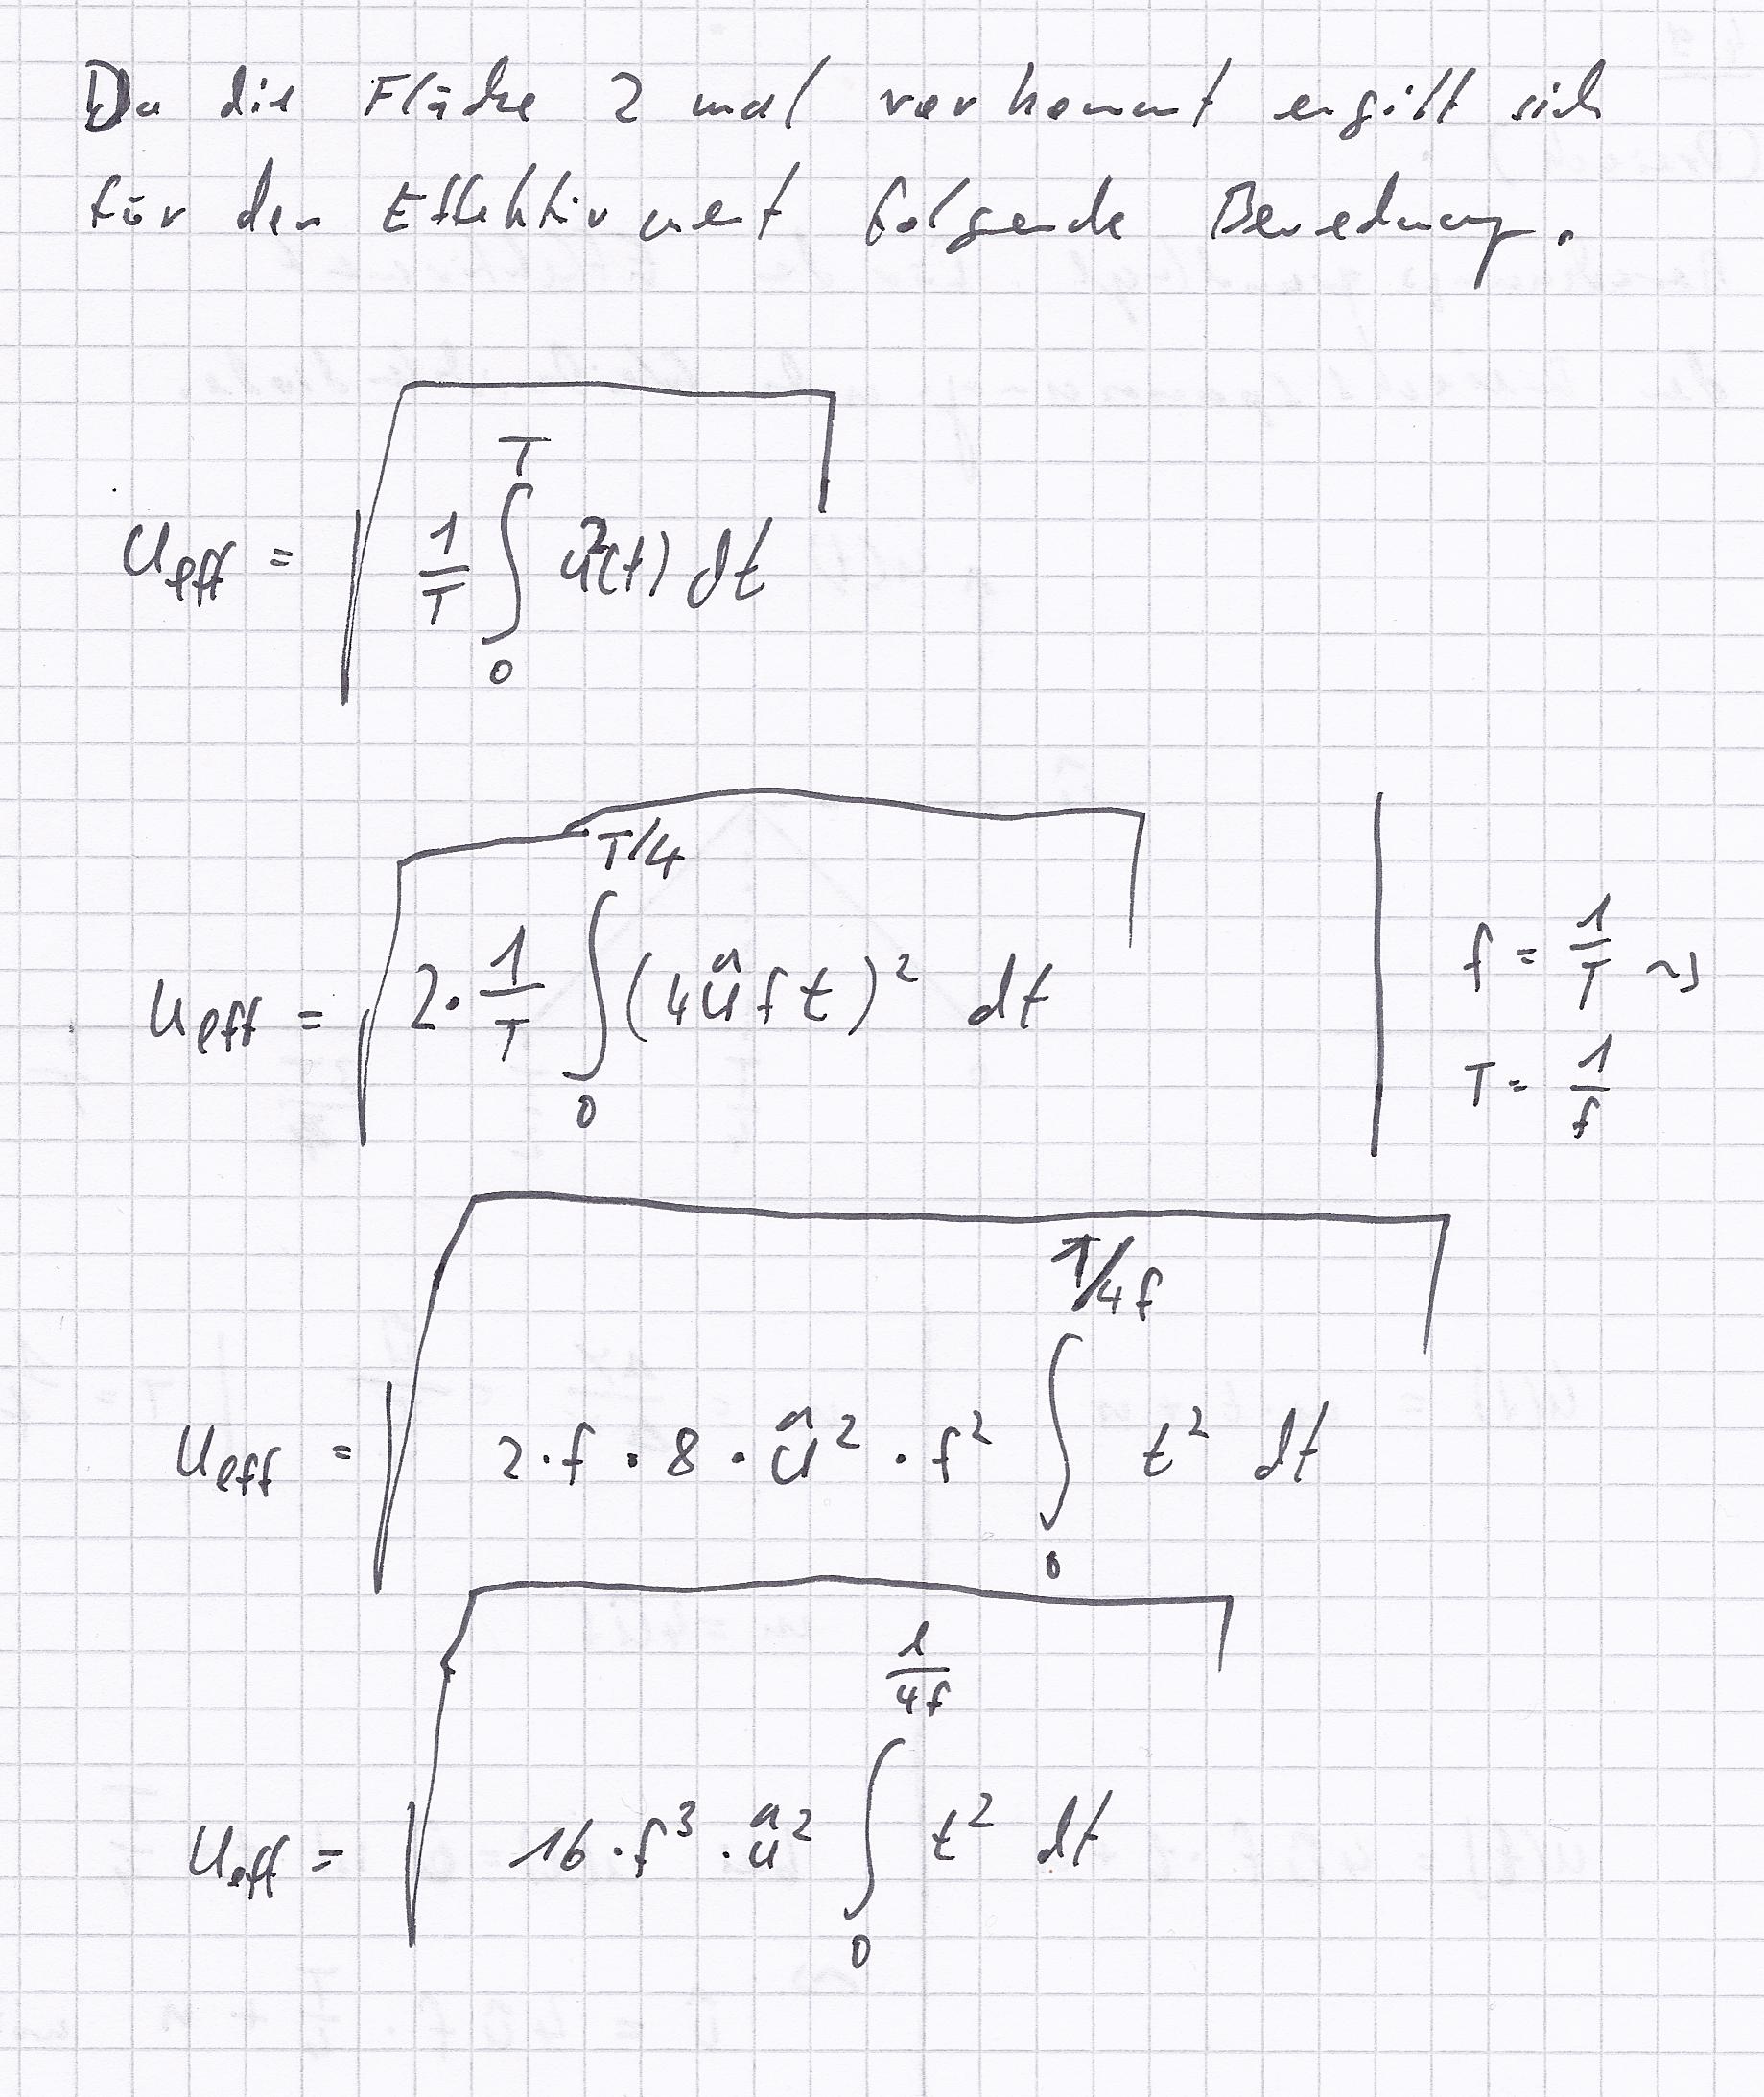 Da die Fläche 2 mal vorkommt ergibt sich
für den Effektivwert folgende Berechnung.
U_eff = √( 1/T ∫_0^T u²(t) dt )
U_eff = √( 2 · 1/T ∫_0^{T/4} (4 û f t)² dt ) | f = 1/T ⇝
T = 1/f
U_eff = √( 2 · f · 8 · û² · f² ∫_0^{1/4f} t² dt )
U_eff = √( 16 · f³ · û² ∫_0^{1/4f} t² dt )